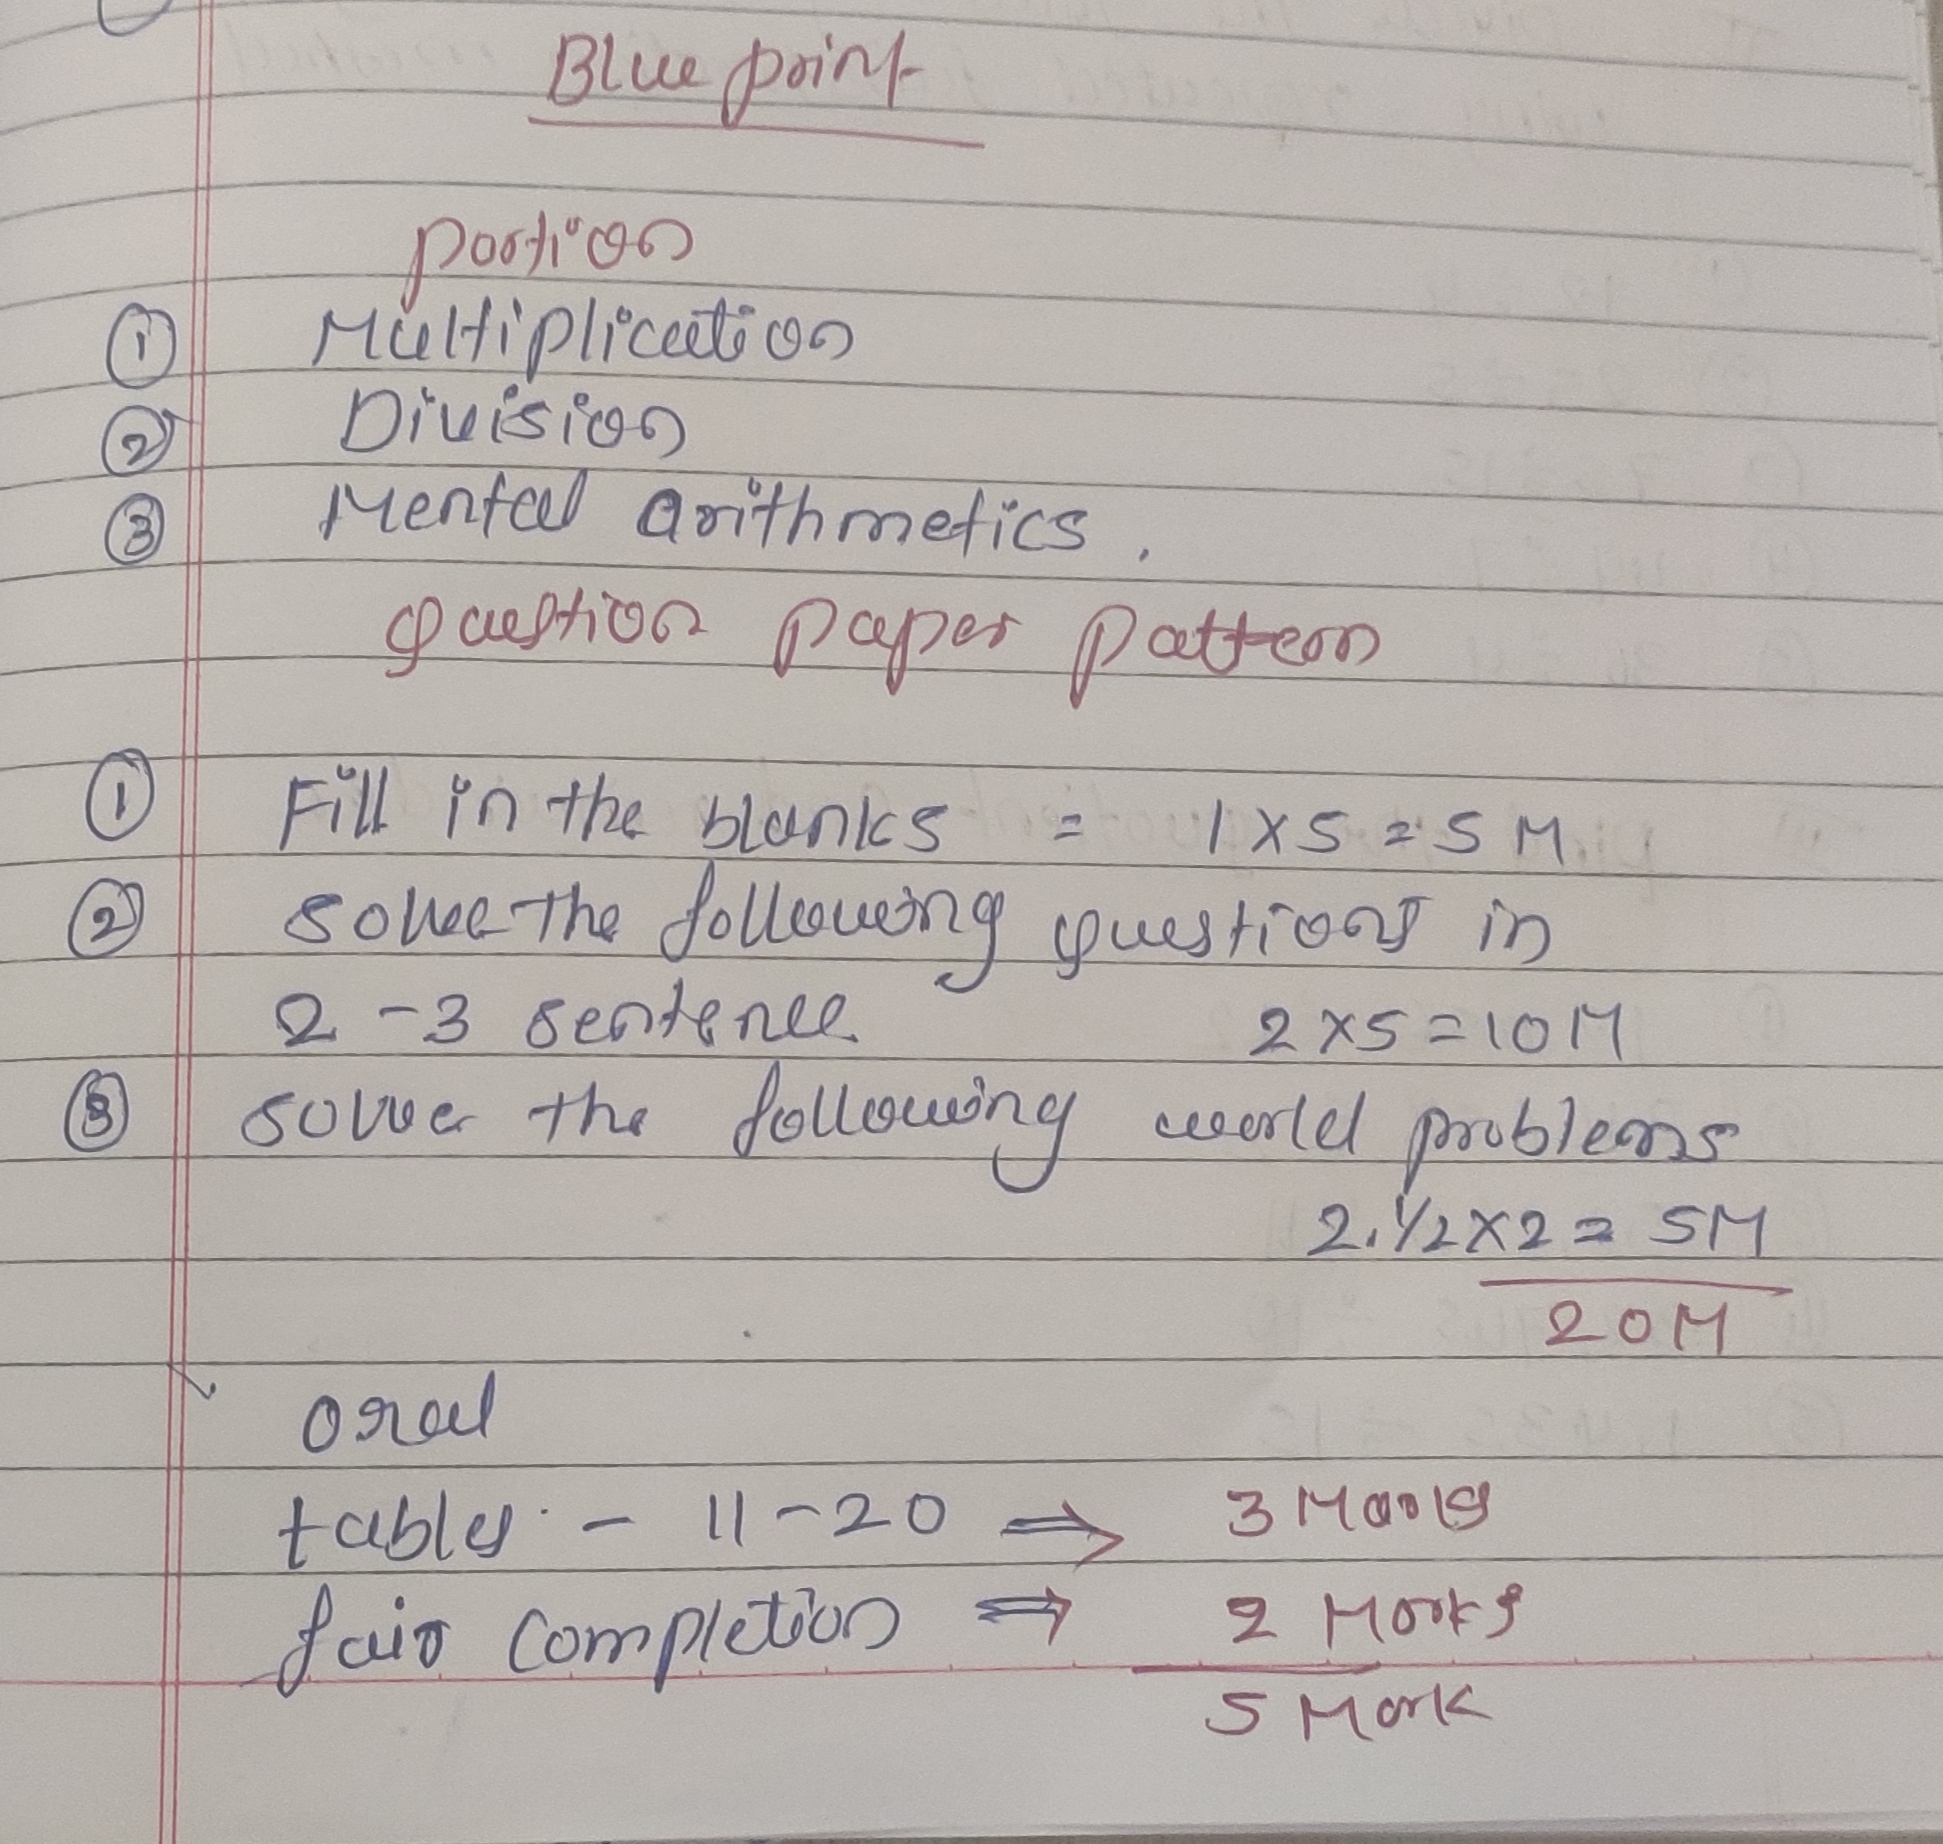 Blue print
portion
① Multiplication
② Division
③ Mental arithmetics.
question paper pattern
① Fill in the blanks = 1 x 5 = 5 M
② Solve the following questions in
2 - 3 sentence 2 x 5 = 10 M
③ solve the following world problems
2.1/2 x 2 = 5M
20M
oral
tables - 11 - 20 ⇒ 3 Marks
fair completion ⇒ 2 Marks
5 Mark